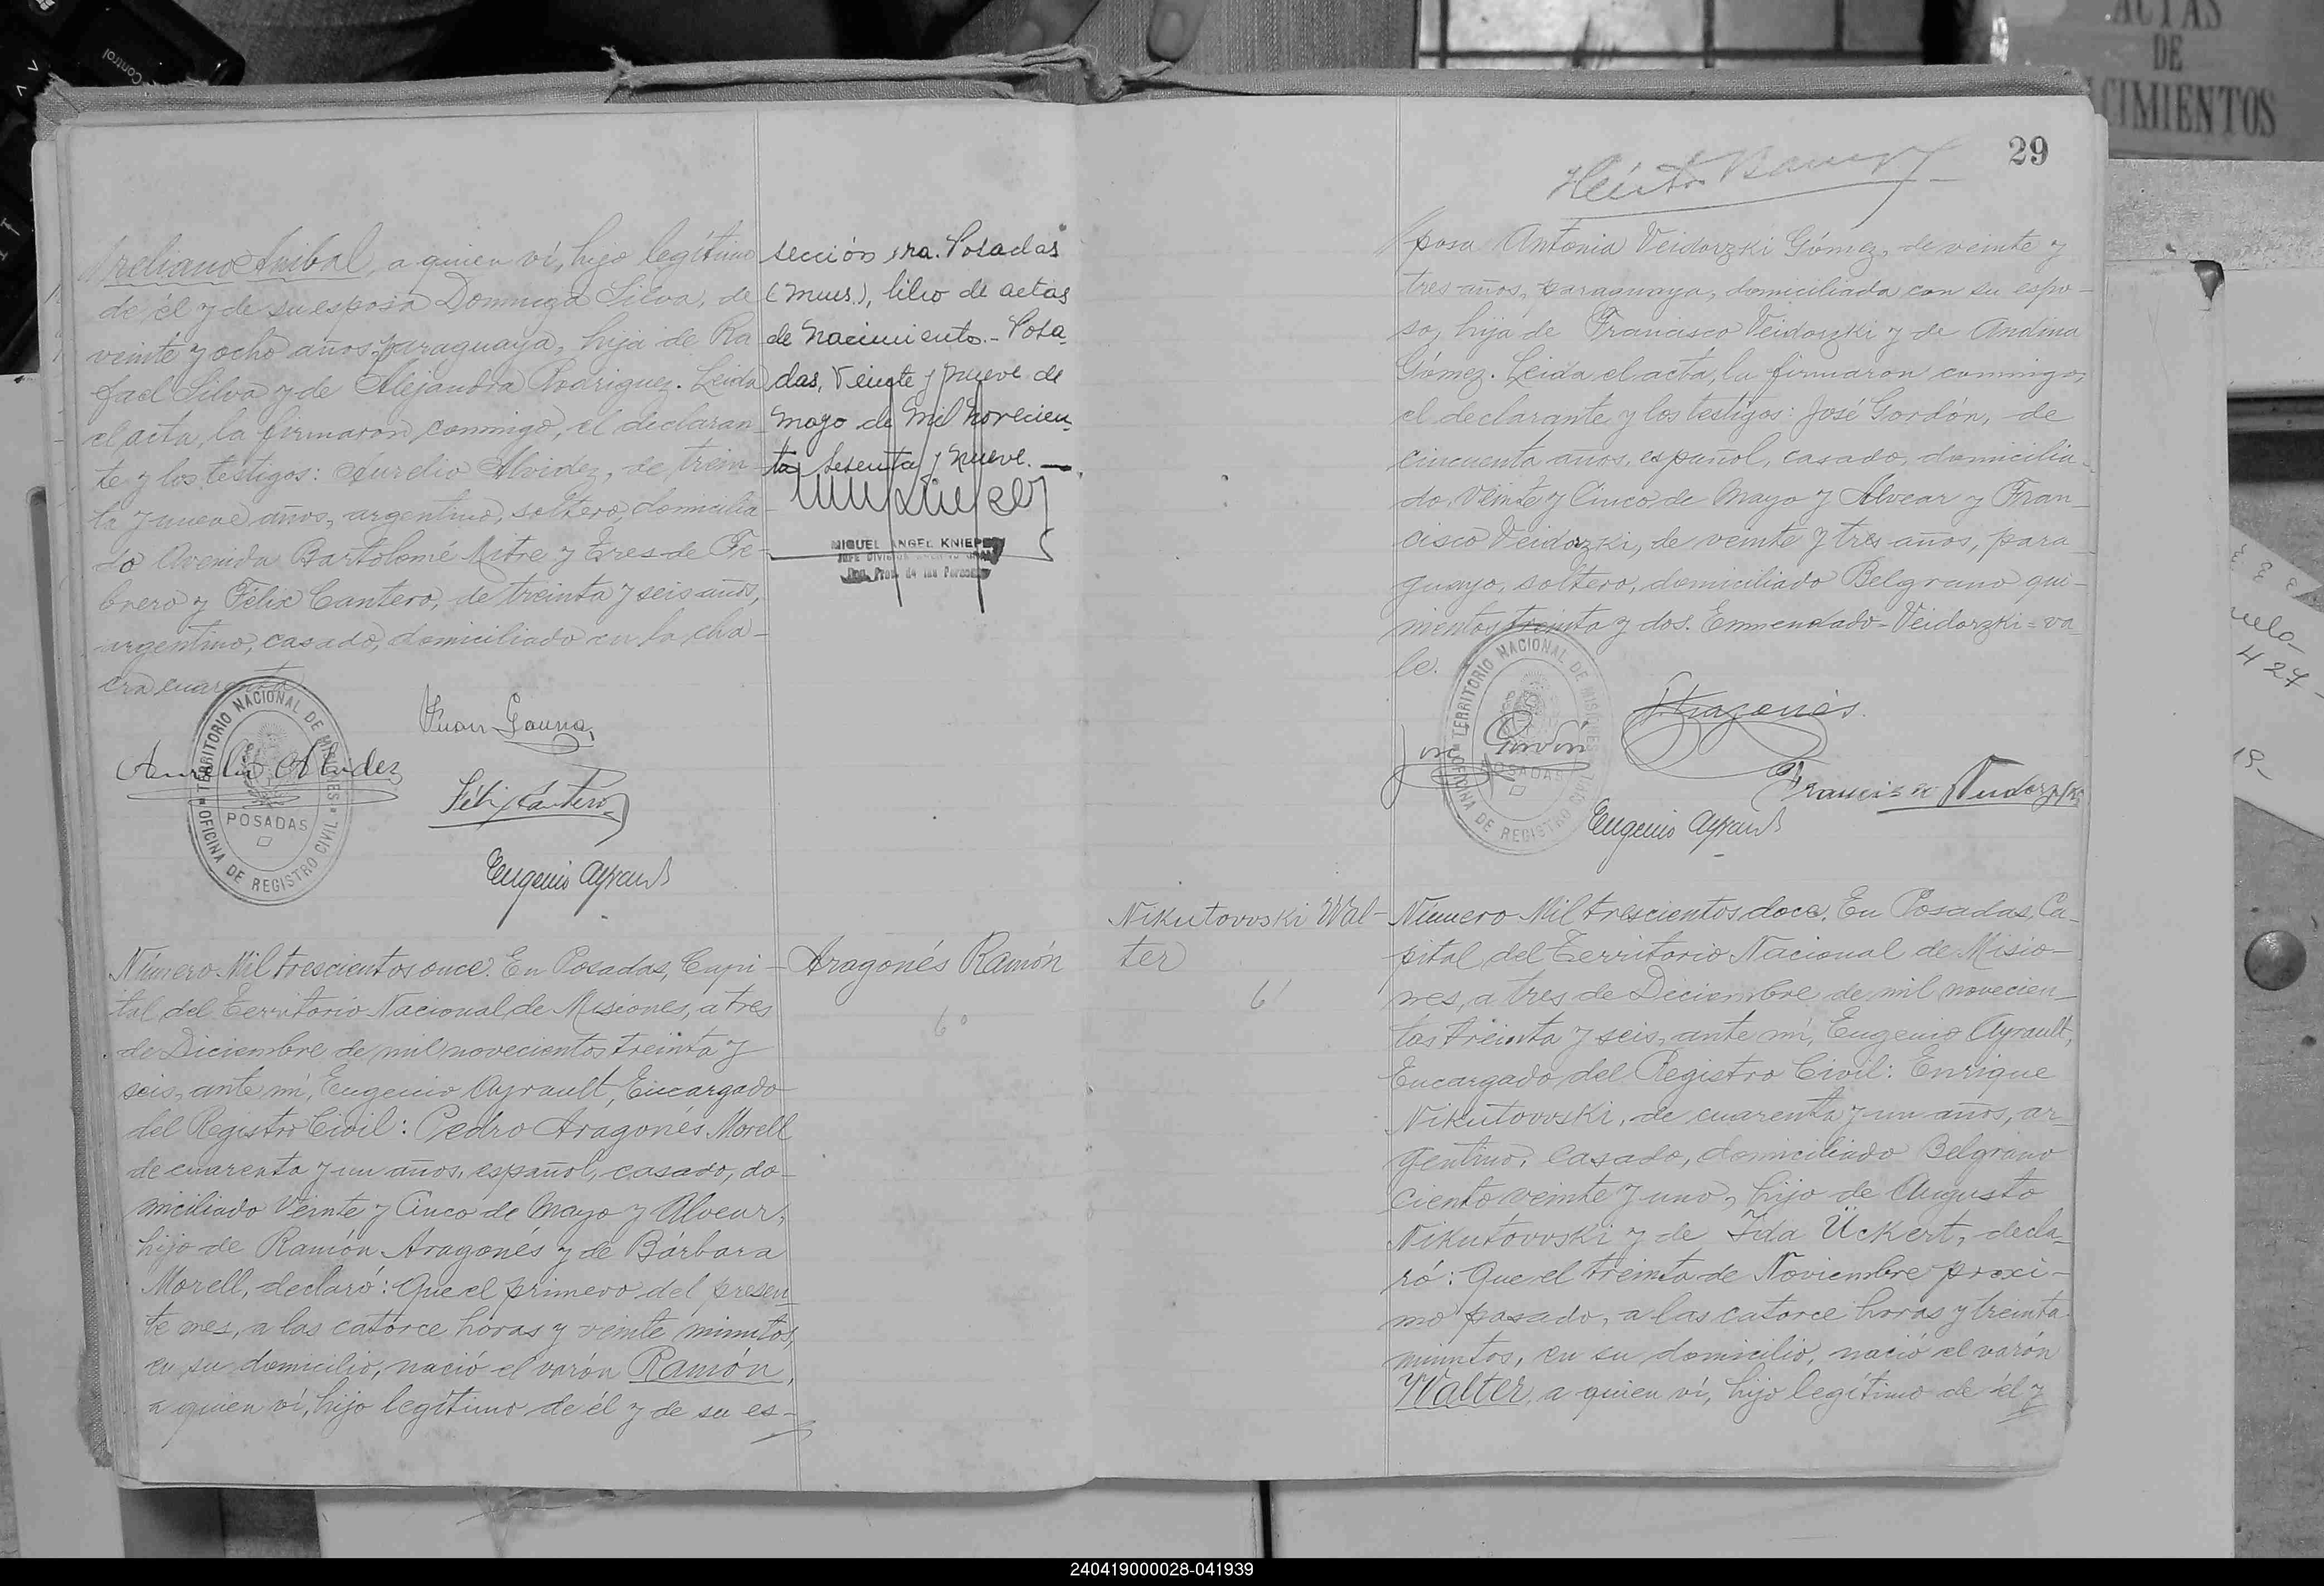 Control
ACTAS
DE
CIMIENTOS
Areliano Anibal, a quien ví, hijo legítimo
de él y de su esposa Dominga Silva, de
veinte y ocho años, paraguaya, hija de Ra
fael Silva y de Alejandra Rodriguez. Leida
el acta, la firmaron conmigo, el declaran
te y los testigos: Aurelio Alvidez, de trein-
ta y nueve años, argentino, soltero, domicilia-
do Avenida Bartolomé Mitre y Tres de Fe-
brero y Félix Cantero, de treinta y seis años,
argentino, casado, domiciliado en la cha-
cra cuarenta
sección 1ra. Posadas
(Mnes.), libro de actas
de Nacimiento.- Posa-
das, Veinte y nueve de
Mayo de Mil Novecien-
tos Sesenta y Nueve.
MIGUEL ANGEL KNIEPER
TERRITORIO NACIONAL DE MISIONES
POSADAS
OFICINA DE REGISTRO CIVIL
Juan Gauna
Aurelio Alvidez
Félix Cantero
Eugenio Ayrault
Número Mil trescientos once. En Posadas, Capi-
tal del Territorio Nacional de Misiones, a tres
de Diciembre de mil novecientos treinta y
seis, ante mí, Eugenio Ayrault, Encargado
del Registro Civil: Pedro Aragonés Morell
de cuarenta y un años, español, casado, do-
miciliado Veinte y Cinco de Mayo y Alvear,
hijo de Ramón Aragonés y de Bárbara
Morell, declaró: Que el primero del presen-
te mes, a las catorce horas y veinte minutos,
en su domicilio, nació el varón Ramón,
a quien ví, hijo legítimo de él y de su es-
Aragonés Ramón
6°
29
posa Antonia Veidorzki Gómez, de veinte y
tres años, paraguaya, domiciliada con su espo-
so, hija de Francisco Veidorzki y de Andina
Gómez. Leída el acta, la firmaron conmigo,
el declarante y los testigos: José Gordón, de
cincuenta años, español, casado, domicilia-
do Veinte y Cinco de Mayo y Alvear y Fran-
cisco Veidorzki, de veinte y tres años, para-
guayo, soltero, domiciliado Belgrano qui-
nientos treinta y dos. Enmendado-Veidorzki=va-
le.
TERRITORIO NACIONAL DE MISIONES
POSADAS
OFICINA DE REGISTRO CIVIL
P. Aragonés
José Gordón
Francisco Veidorzki
Eugenio Ayrault
Nikutovvski Wal-
ter
6
Número Mil trescientos doce. En Posadas, Ca-
pital del Territorio Nacional de Misio-
nes, a tres de Diciembre de mil novecien-
tos treinta y seis, ante mí, Eugenio Ayrault,
Encargado del Registro Civil: Enrique
Nikutovvski, de cuarenta y un años, ar-
gentino, casado, domiciliado Belgrano
ciento veinte y uno, hijo de Augusto
Nikutovvski y de Ida Ückert, decla-
ró: Que el treinta de Noviembre proxi-
mo pasado, a las catorce horas y treinta
minutos, en su domicilio, nació el varón
Walter, a quien ví, hijo legítimo de él y
427
19-
240419000028-041939